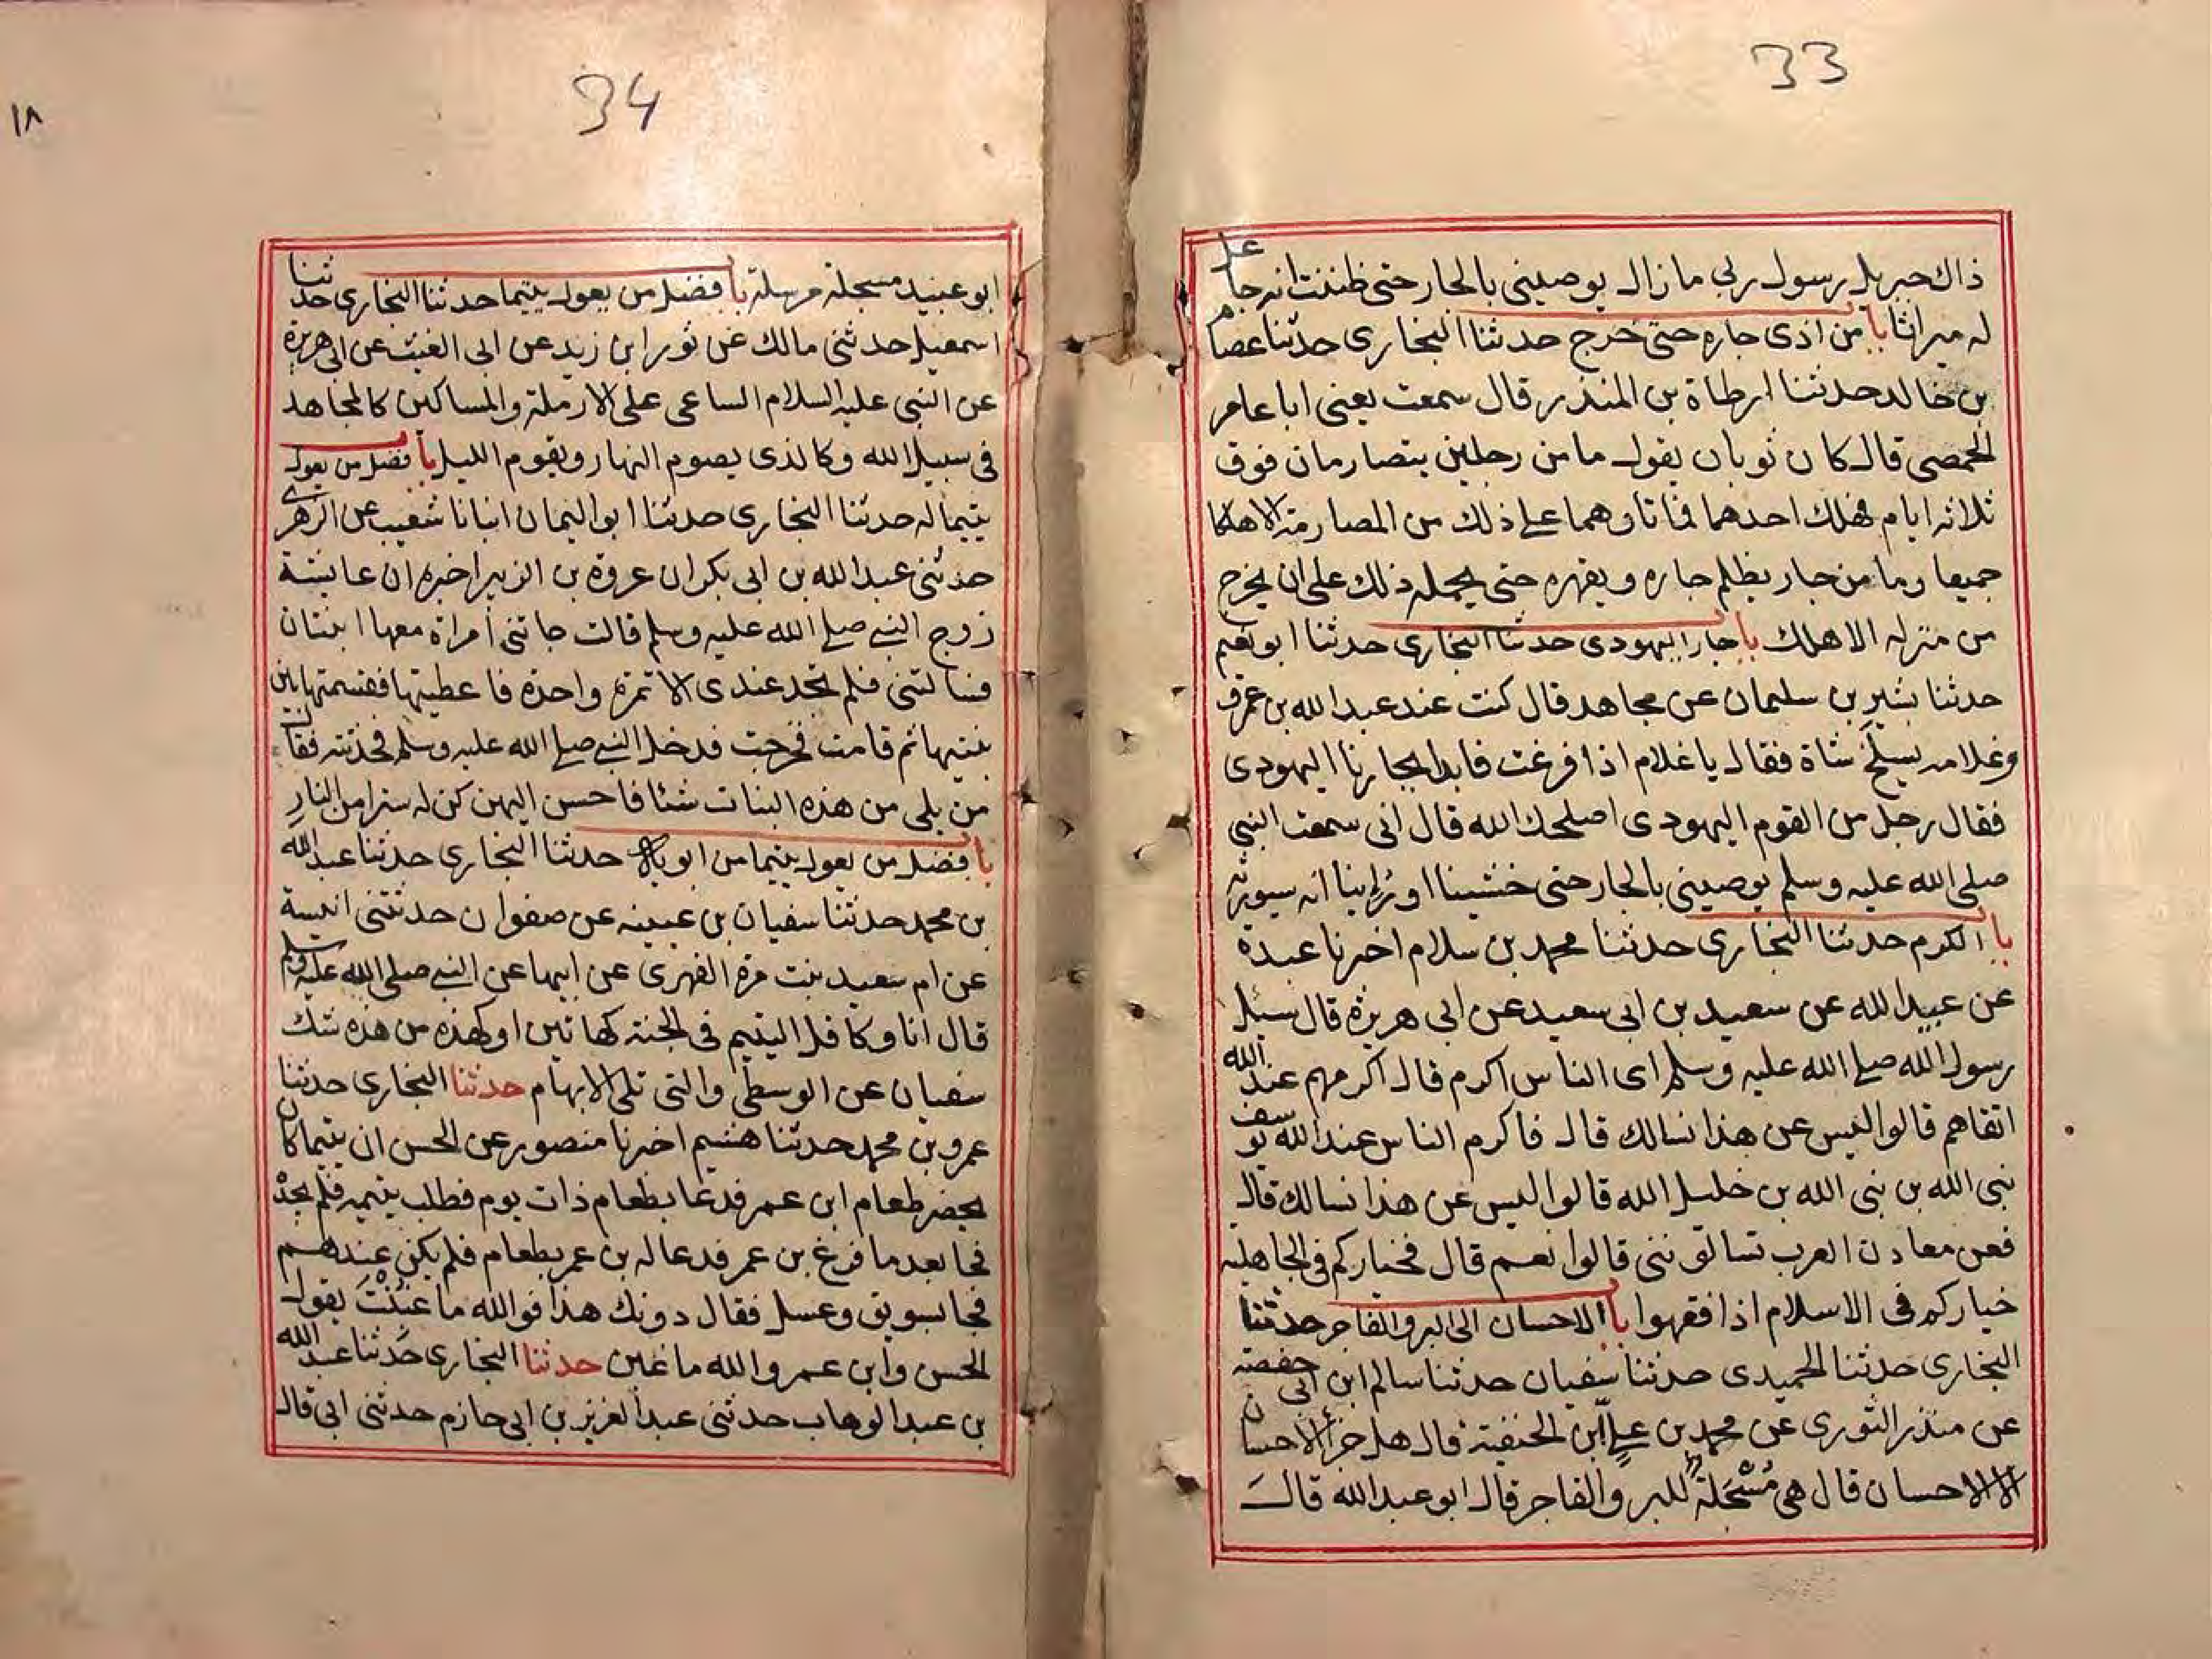 33
ذاك جبريل رسول ربي ما زال يوصيني بالجار حتى ظننت انه جاعل
له ميراثا با من اذى جاره حتى خرج حدثنا البخارى حدثنا عصام
بن خالد حدثنا ارطاة بن المنذر قال سمعت يعنى ابا عامر
الحمصى قال كان ثوبان يقول ما من رجلين يتصارمان فوق
ثلاثه ايام فهلك احدهما فماتا وهما على ذلك من المصارمة الا هلكا
جميعا وما من جار يظلم جاره ويقهره حتى يحمله ذلك على ان يخرج
من منزله الا هلك با جار اليهودى حدثنا البخارى حدثنا ابو نعيم
حدثنا بشير بن سليمان عن مجاهد قال كنت عند عبد الله بن عمرو
وغلامه يسلخ شاة فقال يا غلام اذا فرغت فابدا بجارنا اليهودى
فقال رجل من القوم اليهودى اصلحك الله قال انى سمعت النبي
صلى الله عليه وسلم يوصيني بالجار حتى خشينا او رُاينا انه سيورثه
با الكرم حدثنا البخارى حدثنا محمد بن سلام اخبرنا عبدة
عن عبيد الله عن سعيد بن ابى سعيد عن ابى هريرة قال سيل
رسول الله صلى الله عليه وسلم اى الناس اكرم قال اكرمهم عند الله
اتقاهم قالوا ليس عن هذا نسالك قال فاكرم الناس عند الله يوسف
نبى الله بن نبى الله بن خليل الله قالوا ليس عن هذا نسالك قال
فعن معادن العرب تسالونني قالوا نعم قال فخياركم فى الجاهلية
خياركم فى الاسلام اذا فقهوا با الاحسان الى البر والفاجر حدثنا
البخارى حدثنا الحميدى حدثنا سفيان حدثنا سالم ابن ابى حفصة
عن منذر الثورى عن محمد بن على ابن الحنفية قال هل جزأ الاحسان
الا الاحسان قال هى مُسْجَلة للبر والفاجر قال ابو عبد الله قال
34
١٨
ابو عبيد مسجلة مرسلة با فضل من يعول يتيما حدثنا البخارى حدثنا
اسمعيل حدثنى مالك عن ثور ابن زيد عن ابى الغيث عن ابى هريرة
عن النبى عليه السلام الساعى على الارملة والمساكين كالمجاهد
فى سبيل الله وكالذى يصوم النهار ويقوم الليل با فضل من يعول
يتيما له حدثنا البخارى حدثنا ابو اليمان انبانا شعيب عن الزهرى
حدثنى عبد الله بن ابى بكر ان عروة بن الزبير اخبره ان عايشة
زوج النبى صلى الله عليه وسلم قالت جاتنى امراة معها ابنتان
فسالتنى فلم تجد عندى الا تمرة واحدة فاعطيتها فقسمتها بين
بنتيها ثم قامت فخرجت فدخل النبى صلى الله عليه وسلم فحدثته فقال
من يلى من هذه البنات شئا فاحسن اليهن كن له سترا من النار
با فضل من يعول يتيما من ابويه حدثنا البخارى حدثنا عبد الله
بن محمد حدثنا سفيان بن عيينه عن صفوان حدثتنى انيسة
عن ام سعيد بنت مرة الفهرى عن ابيها عن النبى صلى الله عليه وسلم
قال انا وكافل اليتيم فى الجنة كهاتين او كهذه من هذه شك
سفيان عن الوسطى والتى تلى الابهام حدثنا البخارى حدثنا
عمرو بن محمد حدثنا هشيم اخبرنا منصور عن الحسن ان يتيما كان
يحضر طعام ابن عمر فدعا بطعام ذات يوم فطلب يتيمه فلم يجدْه
فجا بعد ما فرغ بن عمر فدعا له بن عمر بطعام فلم يكن عندهم
فجا بسويق وعسل فقال دونك هذا فو الله ما غُبِنْتَ يقول
الحسن وابن عمر والله ما غبن حدثنا البخارى حدثنا عبد الله
بن عبد الوهاب حدثنى عبد العزيز بن ابى حازم حدثنى ابى قال